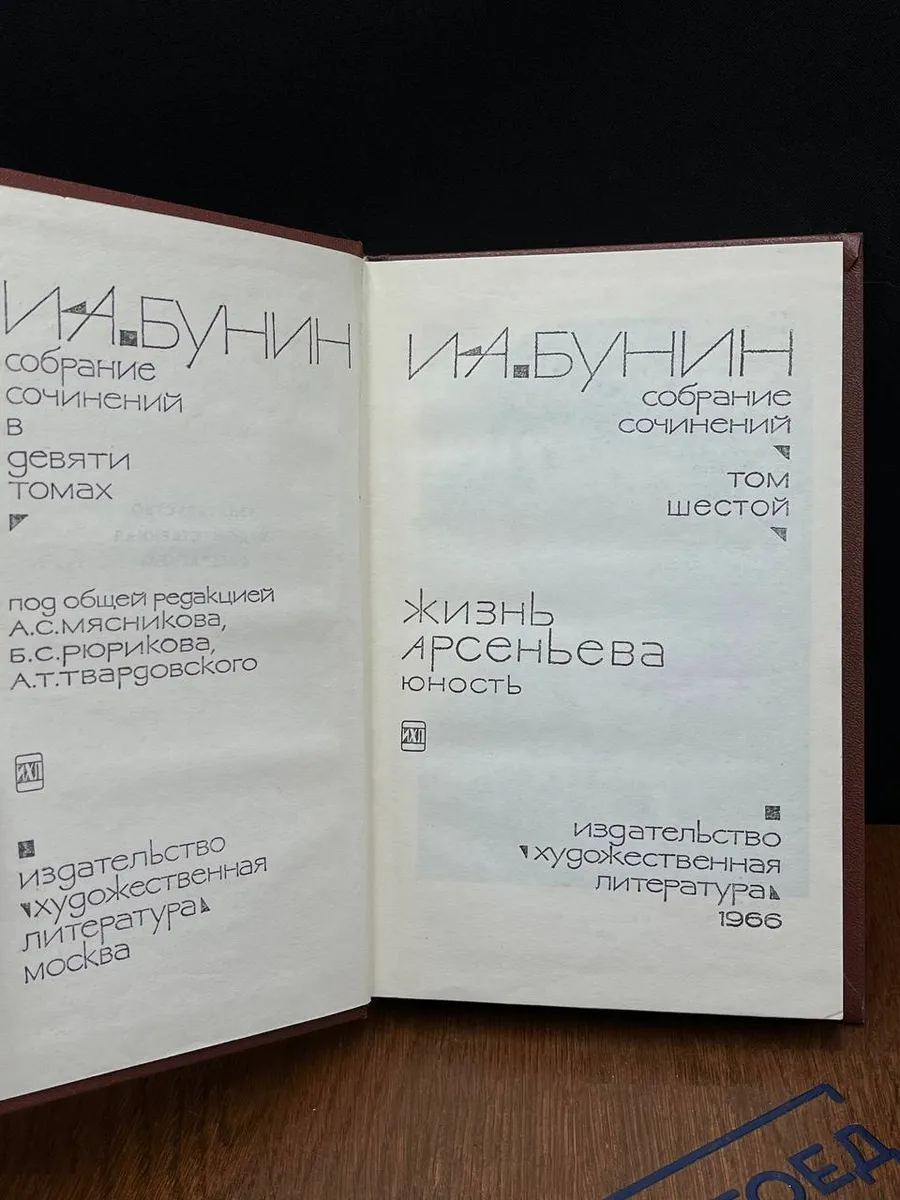 И.А.БУНИН
собрание
сочинений
в
девяти
томах
под общей редакцией
А.С.Мясникова,
Б.С.Рюрикова,
А.Т.Твардовского
издательство
художественная
литература
москва
И.А.БУНИН
собрание
сочинений
том
шестой
жизнь
арсеньева
юность
издательство
художественная
литература
1966